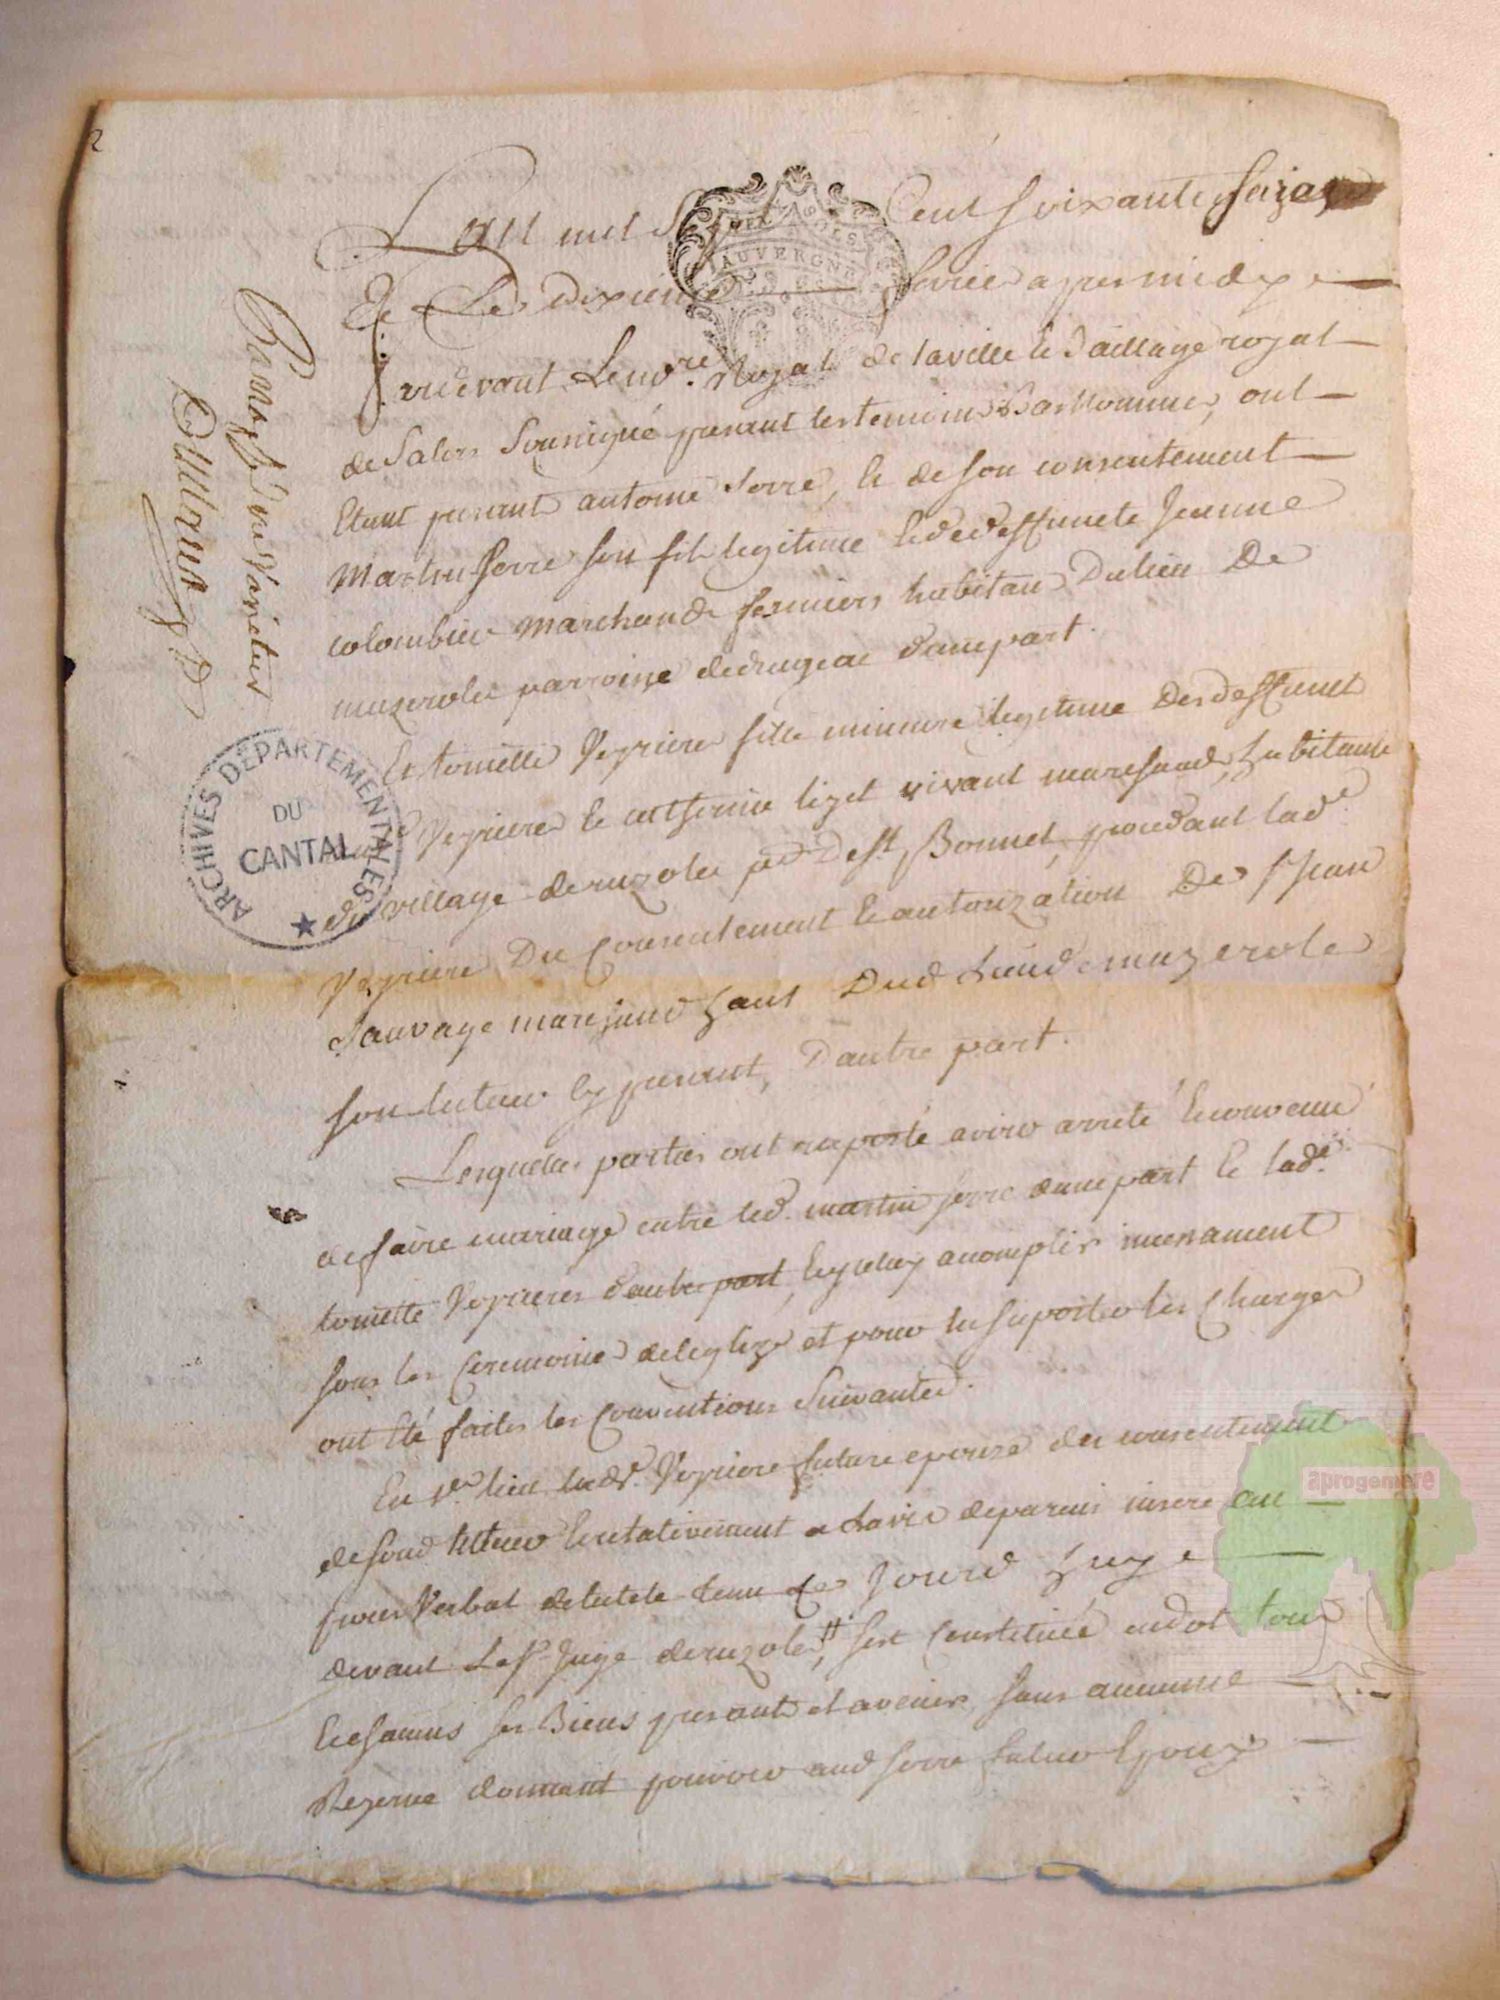 2
Lan mil sept Cent soixante seize
Et Le dixieme fevrier apres midy
pardevant Le no.re Royal de la ville et Baillage royal
de Salers Soussigné presant les temoins Bas nommes, ont
Etant presant antoine serre, et de son consentement
Martin serre son fils legitime et de deffuncte Jeanne
colombier marchands fermiers habitans Du lieu De
mazerolles parroisse de drugeac dune part.
Et toinette Veyriere fille mineure legitime Des deffunct
Veyriere et catherine lizet vivant marchand, habitante
du village de ruzoles psse De st Bonnet, procedant lad.e
Veyriere Du Consentement et autorization De sr Jean
Sauvage marchand hant Dud Lieu de mazerole
son tuteur Cy presant, D'autre part.
Lesquelles parties ont raporté avoir arreté et convenu
de faire mariage entre led. martin serre dune part et lad.e
toinette Veyrieres d'autre part, et yceluy acomplir
sous les Ceremonies de leglize et pour en suporter les Charges
ont Eté faites les Conventions Suivantes.
En 1er lieu lad.e Veyriere future epouse du consentement
de sond tuteur et relativement a Lavis de parens inseré au
proces Verbal de tutele tenu Ce Jourd huy
devant Le sr Juge de ruzoles, sest Constituée en dot tous
Et chacuns ses Biens presants et avenir, sans aucunne
Reserve donnant pouvoir aud serre futur Epoux
AUVERGNE
ARCHIVES DÉPARTEMENTALES
DU
CANTAL
aprogemere